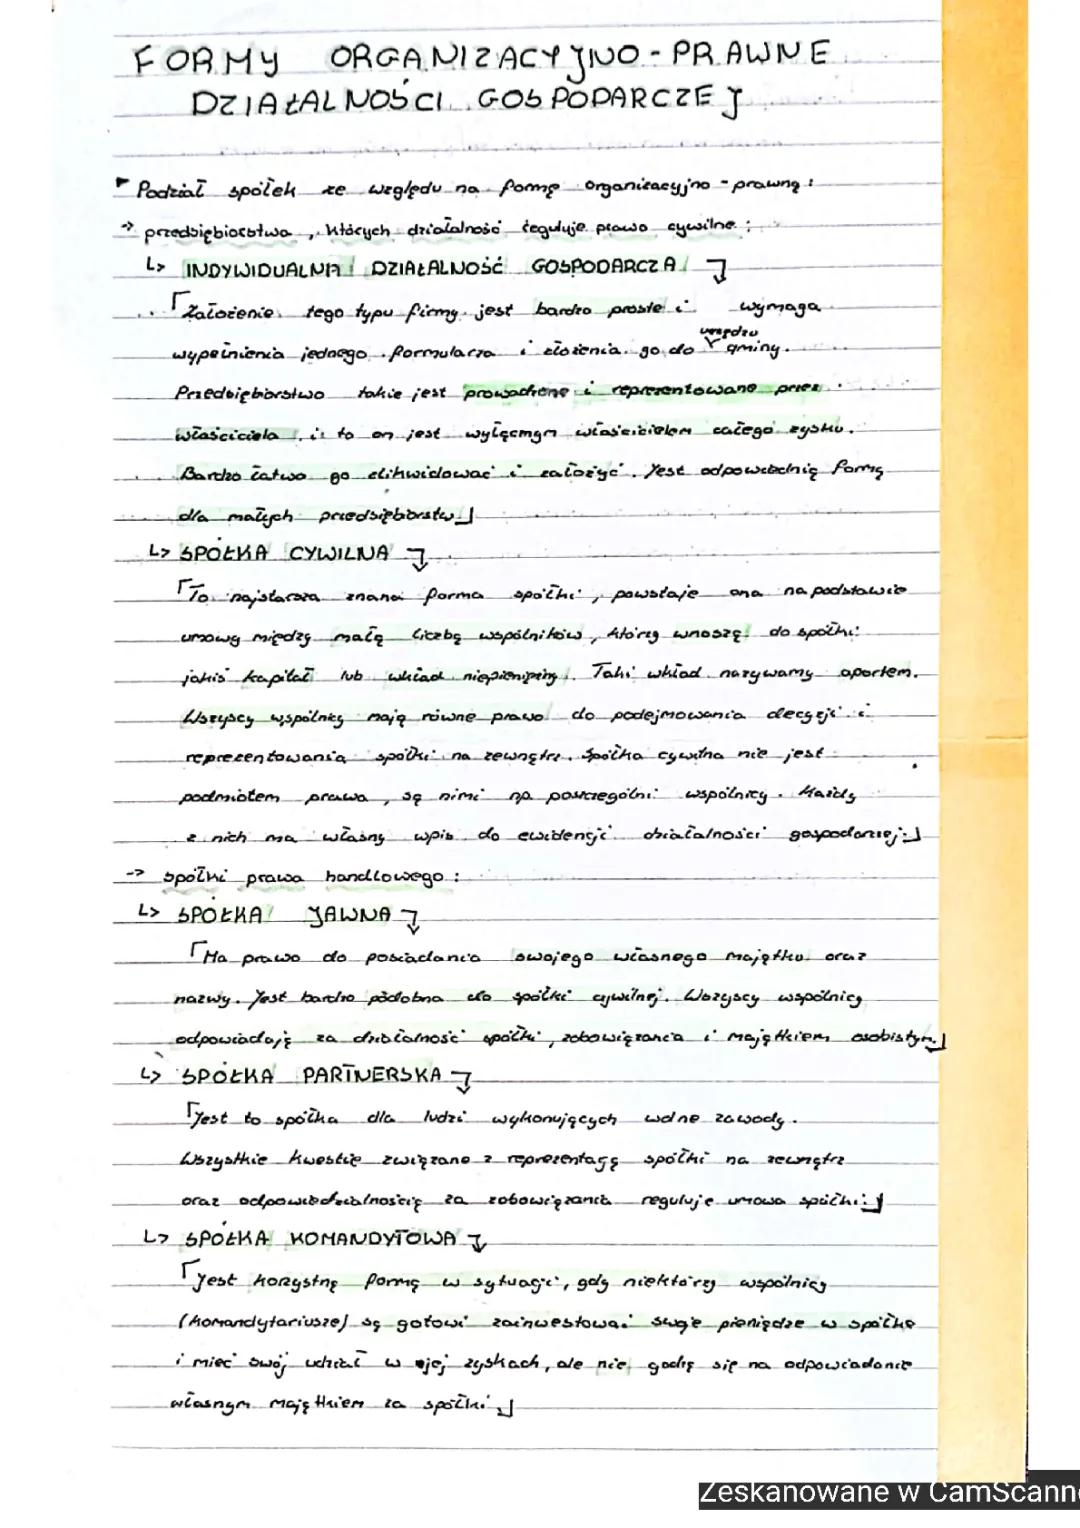 FORMY ORGANIZACYJNO - PRAWNE
DZIAŁALNOŚCI GOSPODARCZEJ
Podział spółek ze względu na formę organizacyjno - prawną :
→ przedsiębiorstwa , których działalność reguluje prawo cywilne :
↳ INDYWIDUALNA DZIAŁALNOŚĆ GOSPODARCZA
Założenie tego typu firmy jest bardzo proste i wymaga
wypełnienia jednego formularza i złożenia go do urzędu gminy.
Przedsiębiorstwo takie jest prowadzone i reprezentowane przez
właściciela , i to on jest wyłącznym właścicielem całego zysku.
Bardzo łatwo go zlikwidować i założyć. Jest odpowiednią formą
dla małych przedsiębiorstw
↳ SPÓŁKA CYWILNA
To najstarsza znana forma spółki , powstaje ona na podstawie
umowy między małą liczbą wspólników , którzy wnoszą do spółki
jakiś kapitał lub wkład niepieniężny. Taki wkład nazywamy aportem.
Wszyscy wspólnicy mają równe prawo do podejmowania decyzji i
reprezentowania spółki na zewnątrz. Spółka cywilna nie jest
podmiotem prawa , są nimi np poszczególni wspólnicy. Każdy
z nich ma własny wpis do ewidencji działalności gospodarczej.
→ spółki prawa handlowego :
↳ SPÓŁKA JAWNA
Ma prawo do posiadania swojego własnego majątku oraz
nazwy. Jest bardzo podobna do spółki cywilnej. Wszyscy wspólnicy
odpowiadają za działalność spółki , zobowiązania i majątkiem osobistym.
↳ SPÓŁKA PARTNERSKA
Jest to spółka dla ludzi wykonujących wolne zawody.
Wszystkie kwestie związane z reprezentacją spółki na zewnątrz
oraz odpowiedzialnością za zobowiązania reguluje umowa spółki.
↳ SPÓŁKA KOMANDYTOWA
Jest korzystną formą w sytuacji , gdy niektórzy wspólnicy
(komandytariusze) są gotowi zainwestować swoje pieniądze w spółkę
i mieć swój udział w jej zyskach , ale nie godzą się na odpowiadanie
własnym majątkiem za spółki
Zeskanowane w CamScann